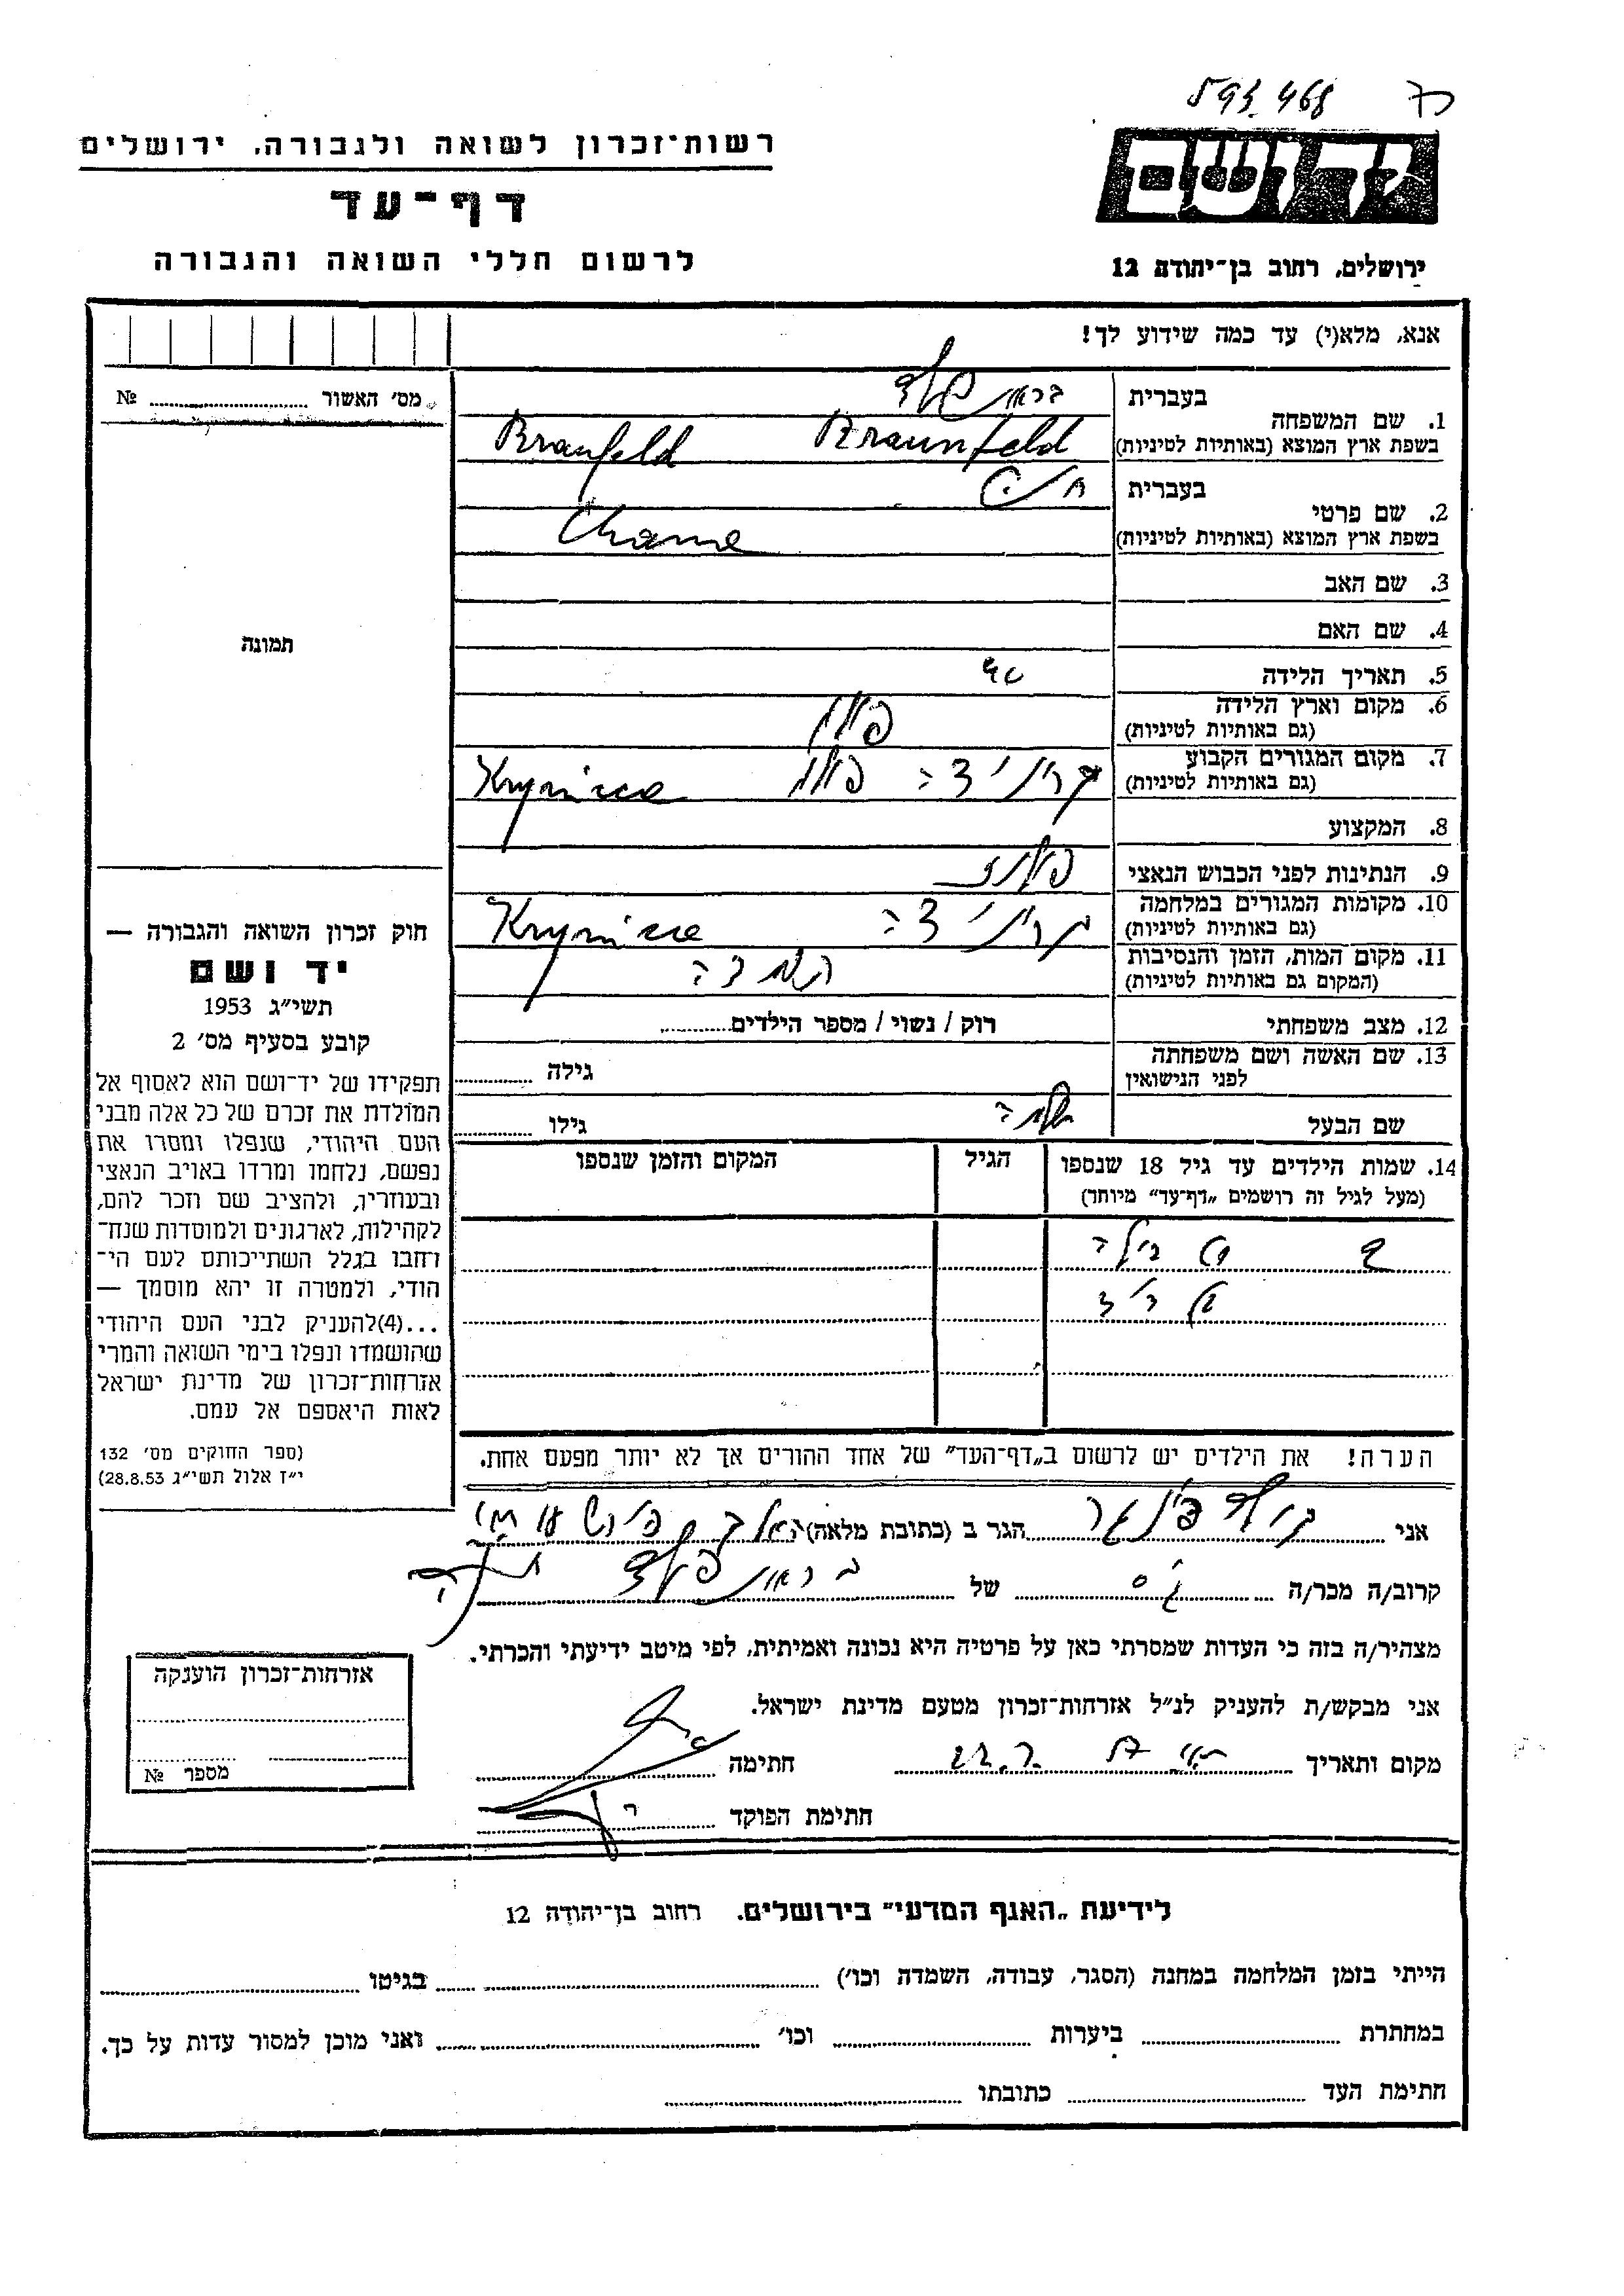 593 468
רשות־זכרון לשואה ולגבורה, ירושלים
דף־עד
לרשום חללי השואה והגבורה
יד ושם
ירושלים, רחוב בן־יהודה 12
אנא, מלא(י) עד כמה שידוע לך!
מס׳ האשור № 
1. שם המשפחה בעברית בראונפלד
בשפת ארץ המוצא (באותיות לטיניות) Braunfeld Branfeld
2. שם פרטי בעברית
בשפת ארץ המוצא (באותיות לטיניות)
3. שם האב
4. שם האם
5. תאריך הלידה
6. מקום וארץ הלידה (גם באותיות לטיניות) פולין
7. מקום המגורים הקבוע (גם באותיות לטיניות) קריניצה פולין Krynica
8. המקצוע
9. הנתינות לפני הכבוש הנאצי
10. מקומות המגורים במלחמה (גם באותיות לטיניות) קריניצה Krynica
11. מקום המות, הזמן והנסיבות (המקום גם באותיות לטיניות)
12. מצב משפחתי רוק / נשוי / מספר הילדים
13. שם האשה ושם משפחתה לפני הנישואין גילה
שם הבעל שלמה גילו
14. שמות הילדים עד גיל 18 שנספו (מעל לגיל זה רושמים „דף־עד״ מיוחד) הגיל המקום והזמן שנספו
תמונה
חוק זכרון השואה והגבורה —
יד ושם
תשי״ג 1953
קובע בסעיף מס׳ 2
תפקידו של יד־ושם הוא לאסוף אל
המולדת את זכרם של כל אלה מבני
העם היהודי, שנפלו ומסרו את
נפשם, נלחמו ומרדו באויב הנאצי
ובעוזריו, ולהציב שם וזכר להם,
לקהילות, לארגונים ולמוסדות שנח־
רחבו בגלל השתייכותם לעם הי־
הודי, ולמטרה זו יהא מוסמך —
...(4)להעניק לבני העם היהודי
שהושמדו ונפלו בימי השואה והמרי
אזרחות־זכרון של מדינת ישראל
לאות היאספם אל עמם.
(ספר החוקים מס׳ 132
י״ז אלול תשי״ג 28.8.53)
הערה! את הילדים יש לרשום ב„דף־העד״ של אחד ההורים אך לא יותר מפעם אחת.
אני הגר ב (כתובת מלאה)
קרוב/ה מכר/ה של בראונפלד
מצהיר/ה בזה כי העדות שמסרתי כאן על פרטיה היא נכונה ואמיתית, לפי מיטב ידיעתי והכרתי.
אני מבקש/ת להעניק לנ״ל אזרחות־זכרון מטעם מדינת ישראל.
מקום ותאריך חתימה
חתימת הפוקד
אזרחות־זכרון הוענקה
מספר №
לידיעת „האגף המדעי״ בירושלים. רחוב בן־יהודה 12
הייתי בזמן המלחמה במחנה (הסגר, עבודה, השמדה וכו׳) בגיטו
במחתרת ביערות וכו׳ ואני מוכן למסור עדות על כך.
חתימת העד כתובתו